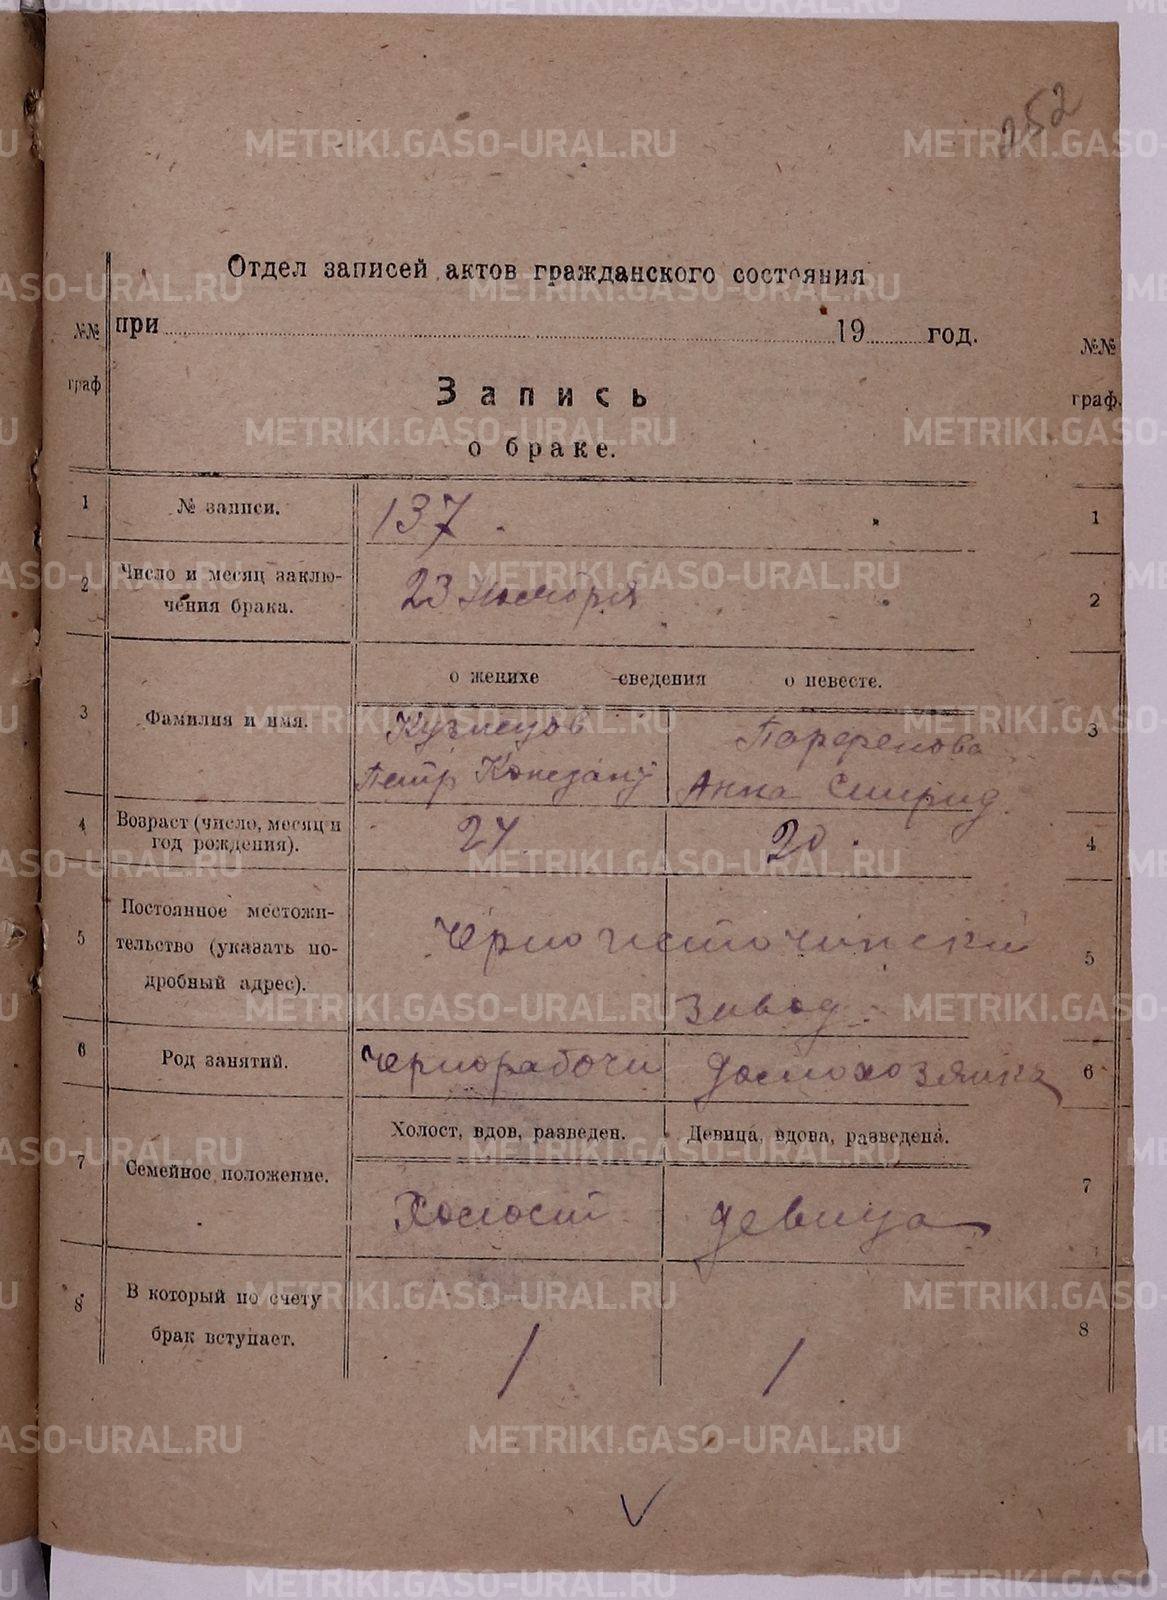 252
Отдел записей актов гражданского состояния
№№ граф
при 19 год.
№№ граф.
Запись
о браке.
1 № записи. 137. 1
2 Число и месяц заключения брака. 23 Ноября 2
о женихе сведения о невесте.
3 Фамилия и имя. Кузнецов Парфенова 3
Петр Анна Спирид.
4 Возраст (число, месяц и год рождения). 27. 20. 4
5 Постоянное местожительство (указать подробный адрес). Черноисточински 5
завод.
6 Род занятий. Чернорабочи домохозяйка 6
Холост, вдов, разведен. Девица, вдова, разведена.
7 Семейное положение. Холост девица 7
8 В который по счету брак вступает. 1 1 8
METRIKI.GASO-URAL.RU